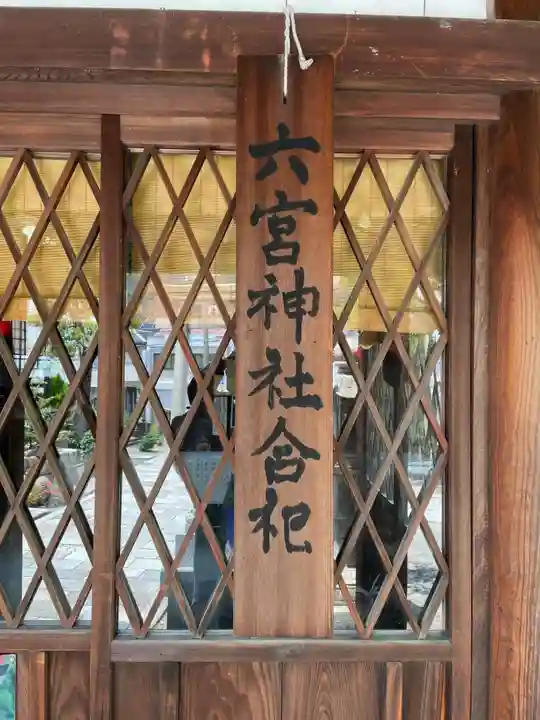 六宮神社合祀